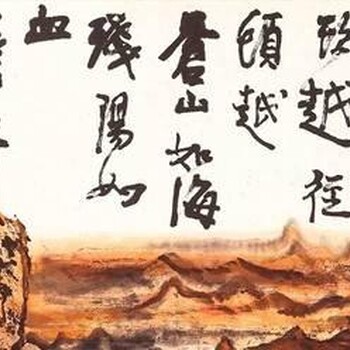 頭越從
頭越
蒼山如海
殘陽如
血